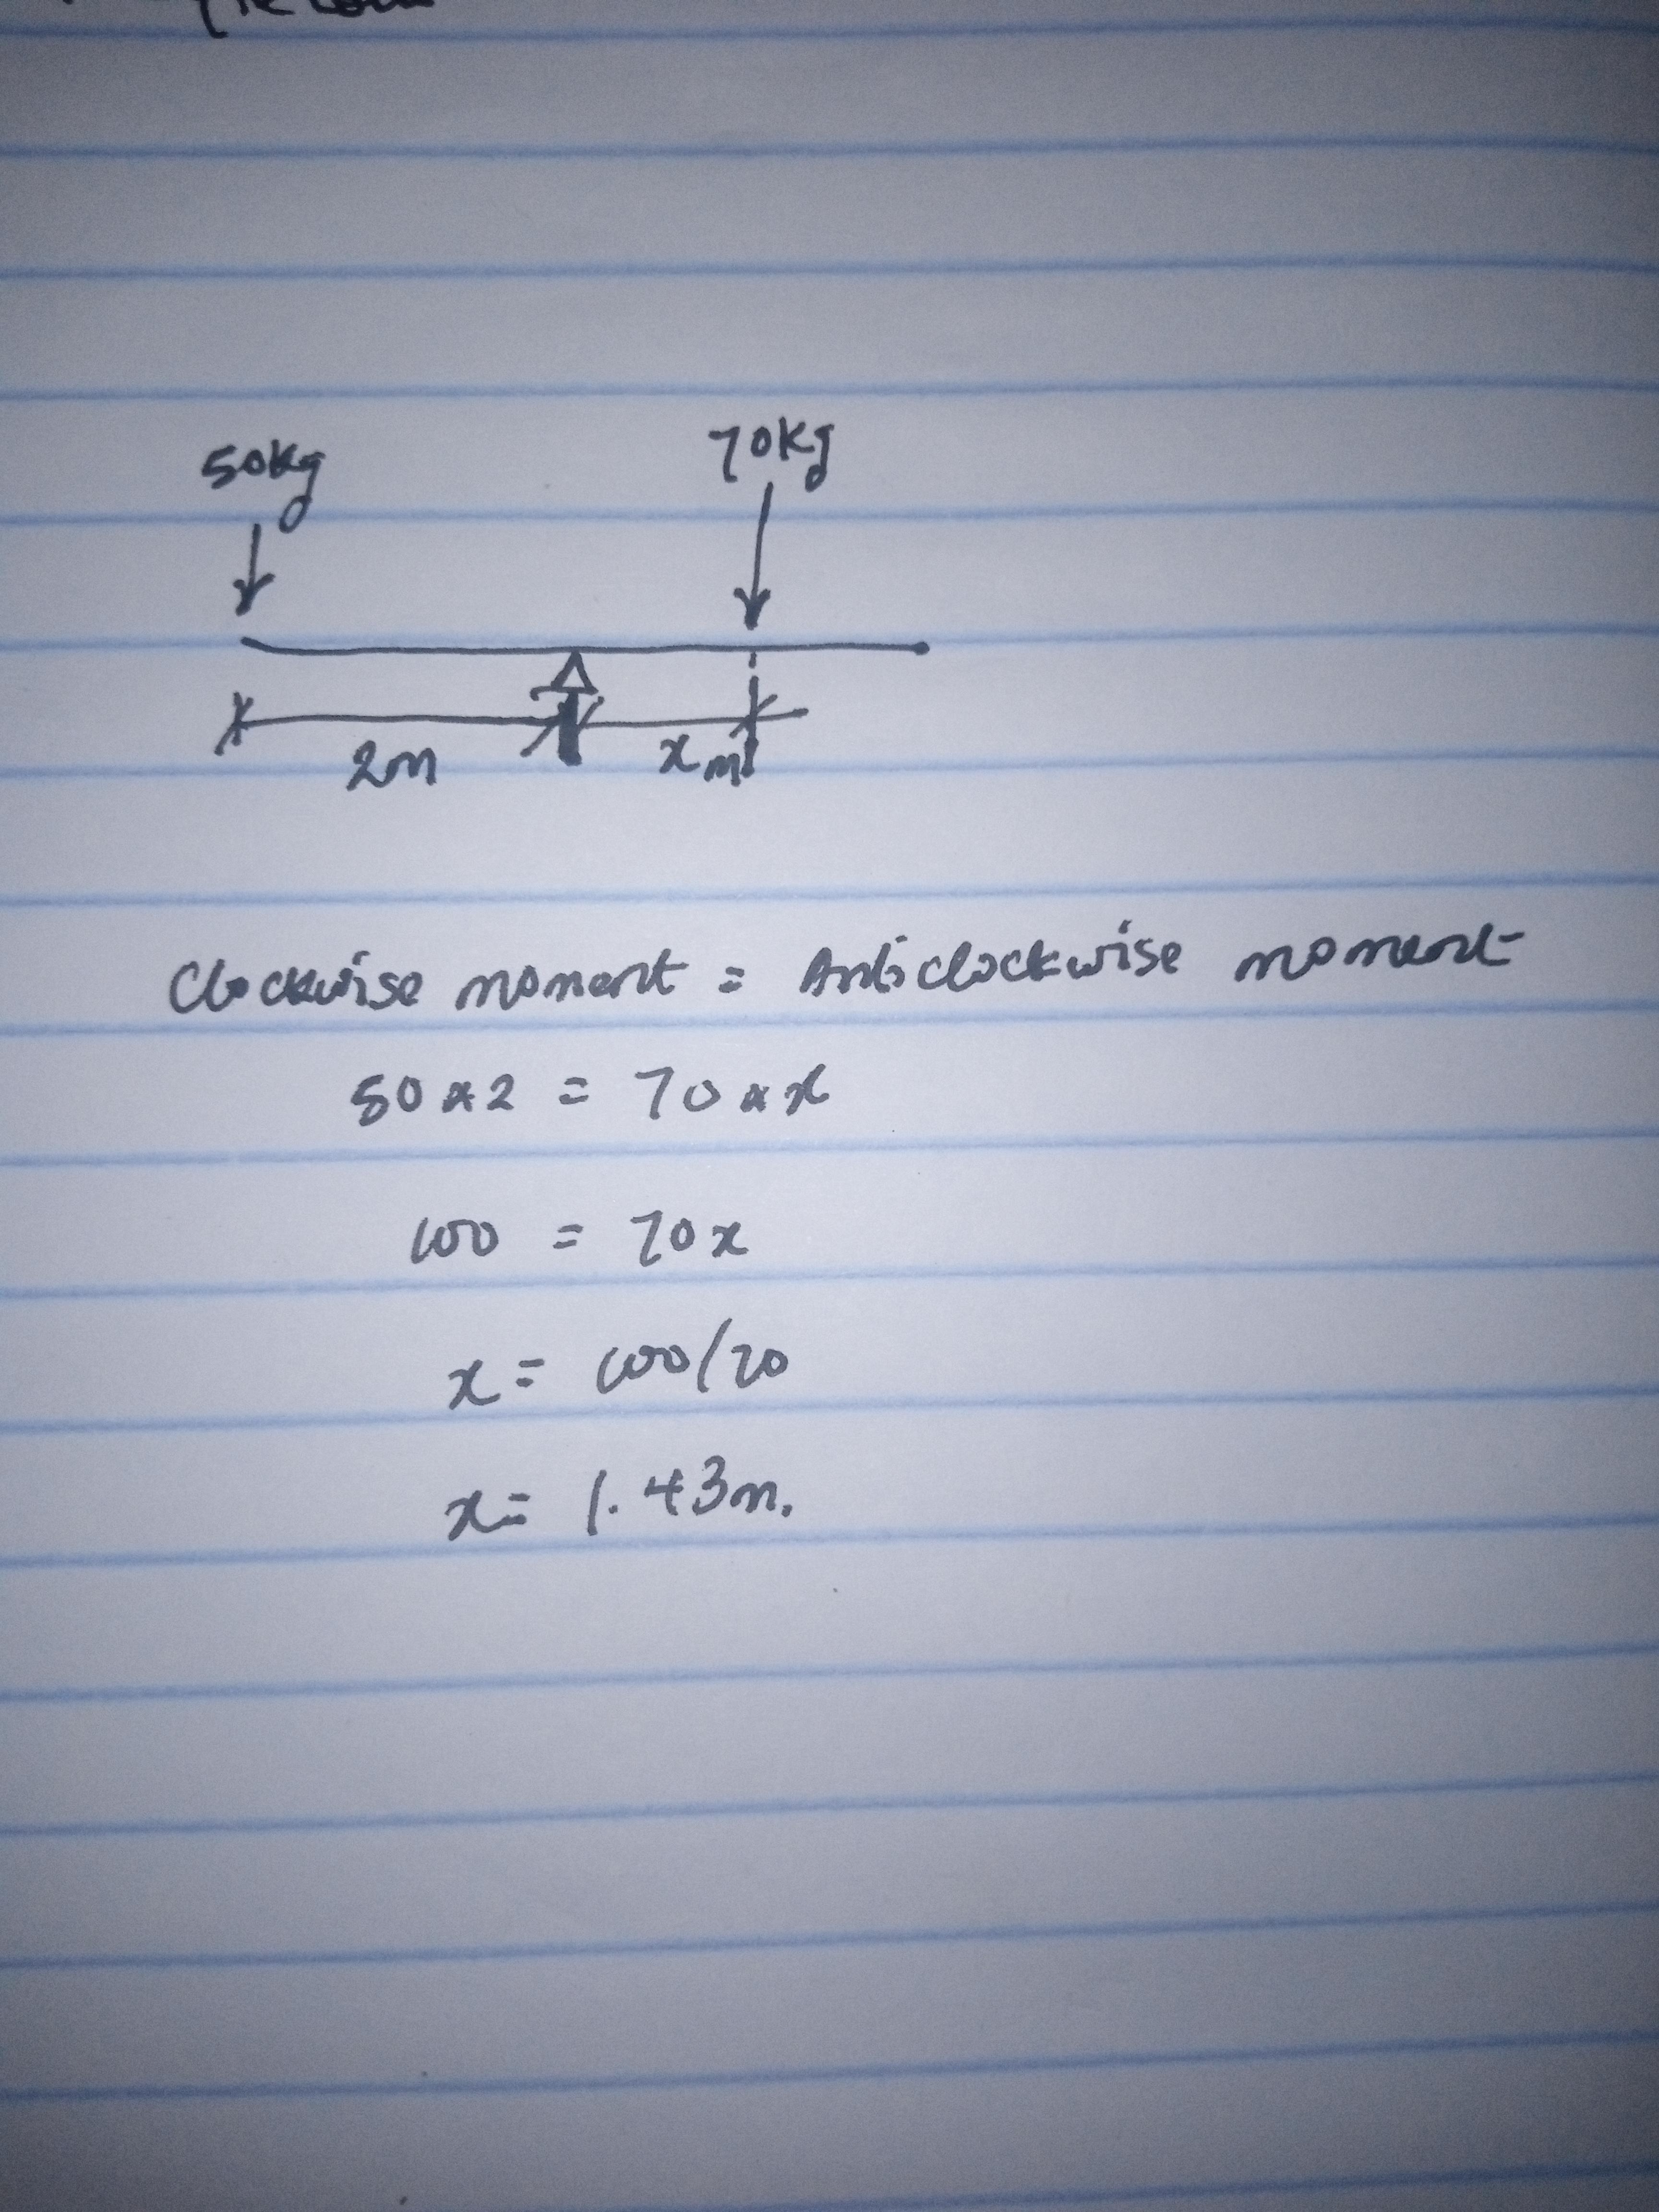 50kg 70kg
2m x m
Clockwise moment = Anticlockwise moment
50 x 2 = 70 x x
100 = 70x
x = 100/70
x = 1.43m.